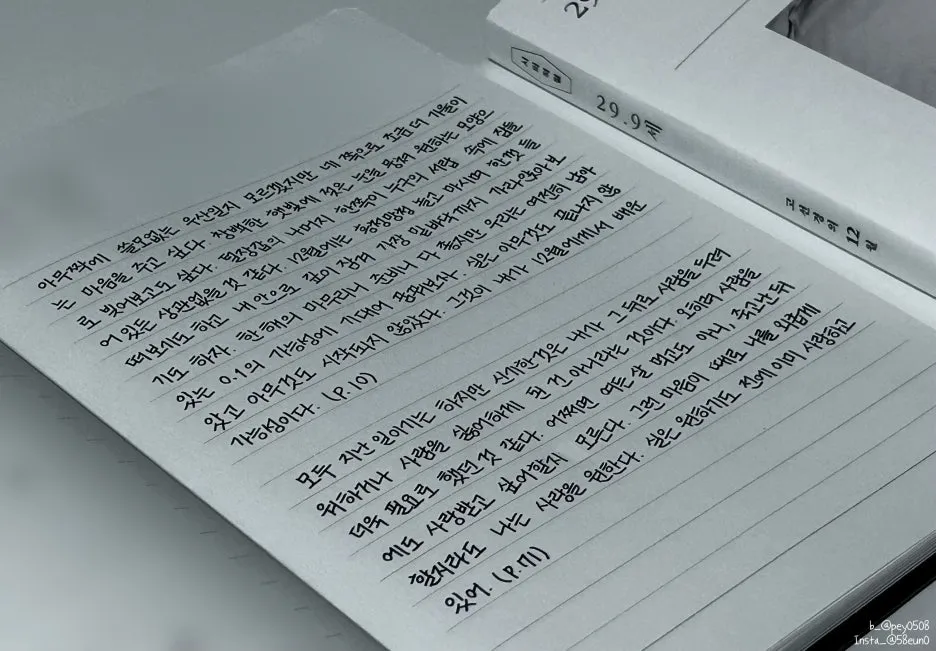 29
시의적절
29.9세
고선경의 12월
아무짝에 쓸모없는 우산일지 모르겠지만 네 쪽으로 조금 더 기울이
는 마음을 주고 싶다. 창백한 햇빛에 젖은 눈을 뭉쳐 원하는 모양으
로 빚어보고도 싶다. 털장갑의 나머지 한쪽이 누구의 서랍 속에 잠들
어 있든 상관없을 것 같다. 12월에는 흥청망청 놀고 마시며 한껏 들
떠보기도 하고 내 안으로 깊이 잠겨 가장 밑바닥까지 가라앉아 보
기도 하자. 한 해의 마무리나 준비나 다 좋지만 우리는 여전히 남아
있는 0.1의 가능성에 기대어 꿈꿔보자. 실은 아무것도 끝나지 않
았고 아무것도 시작되지 않았다. 그것이 내가 12월에게서 배운
가능성이다. (P.10)
모두 지난 일이기는 하지만 신기한 것은 내가 그 뒤로 사람을 두려
워하거나 사람을 싫어하게 된 건 아니라는 것이다. 오히려 사람을
더욱 필요로 했던 것 같다. 어쩌면 여든 살 먹고도 아니, 죽고 난 뒤
에도 사랑받고 싶어할지 모른다. 그런 마음이 때로 나를 외롭게
할지라도 나는 사랑을 원한다. 실은 원하기도 전에 이미 사랑하고
있어. (P.71)
b_@pey0508
Insta_@58eun0